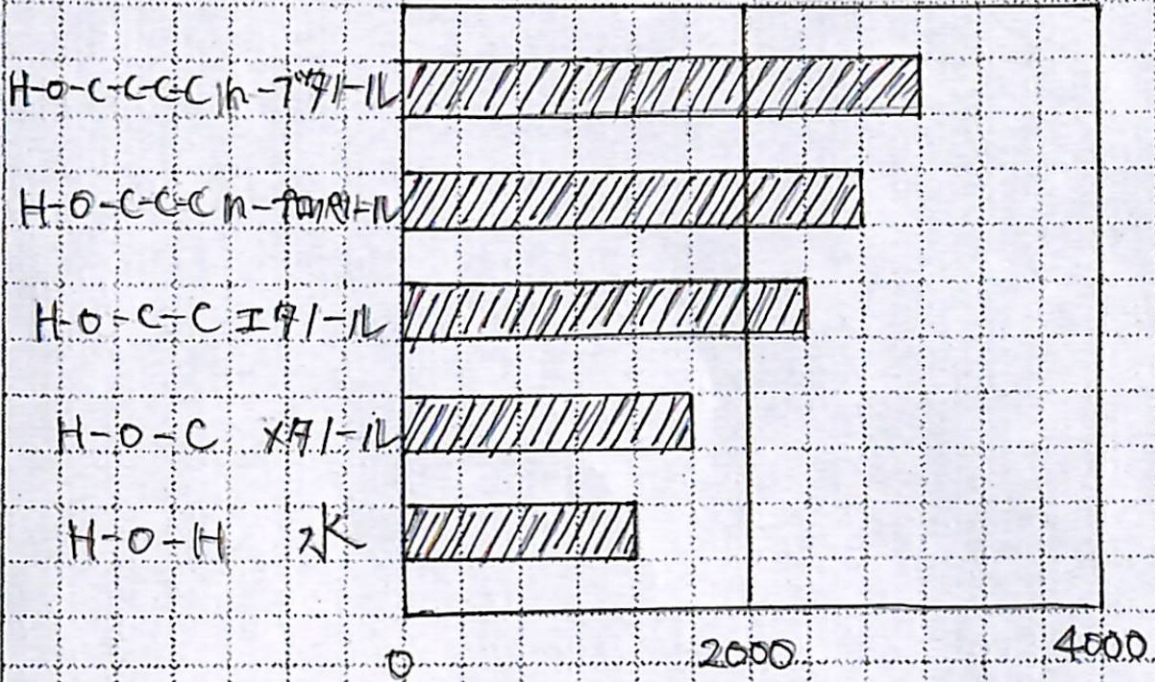 H-O-C-C-C-C n-ブタノール
H-O-C-C-C n-
H-O-C-C エタノール
H-O-C メタノール
H-O-H 水
0 2000 4000